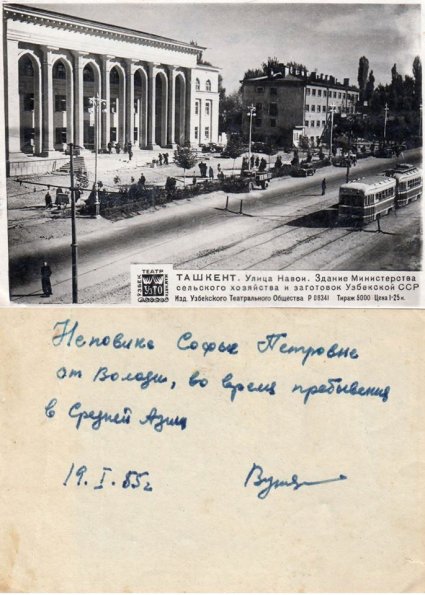 ТЕАТР
УЗБЕК
УзТО
ТАШКЕНТ. Улица Навои. Здание Министерства
сельского хозяйства и заготовок Узбекской ССР
Изд. Узбекского Театрального Общества Р 08341 Тираж 5000 Цена 1-25 к.
Неповика Софье Петровне
от Володи, во время пребывения
в Средней Азии
19. I. 55г.